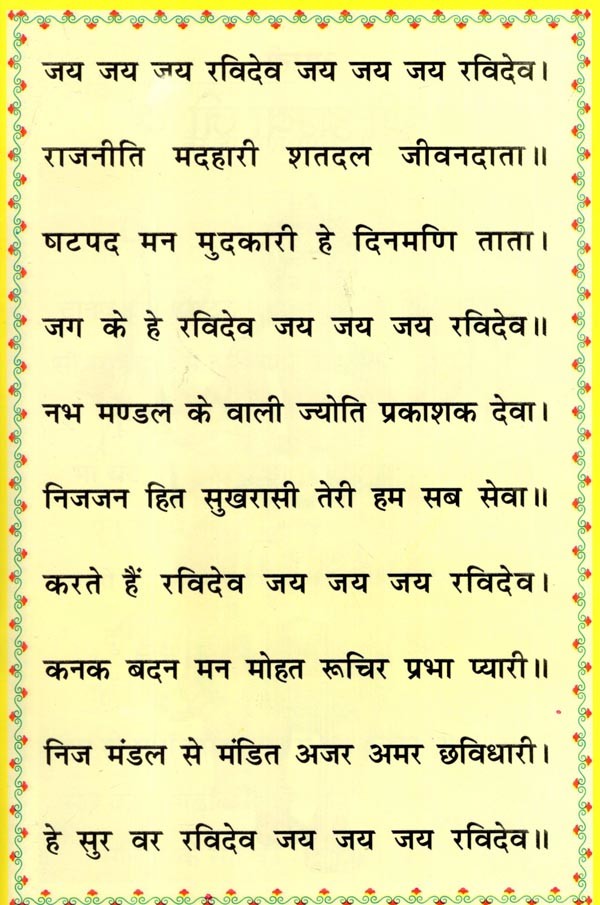 जय जय जय रविदेव जय जय जय रविदेव।
राजनीति मदहारी शतदल जीवनदाता॥
षटपद मन मुदकारी हे दिनमणि ताता।
जग के हे रविदेव जय जय जय रविदेव॥
नभ मण्डल के वाली ज्योति प्रकाशक देवा।
निजजन हित सुखरासी तेरी हम सब सेवा॥
करते हैं रविदेव जय जय जय रविदेव।
कनक बदन मन मोहत रूचिर प्रभा प्यारी॥
निज मंडल से मंडित अजर अमर छविधारी।
हे सुर वर रविदेव जय जय जय रविदेव॥